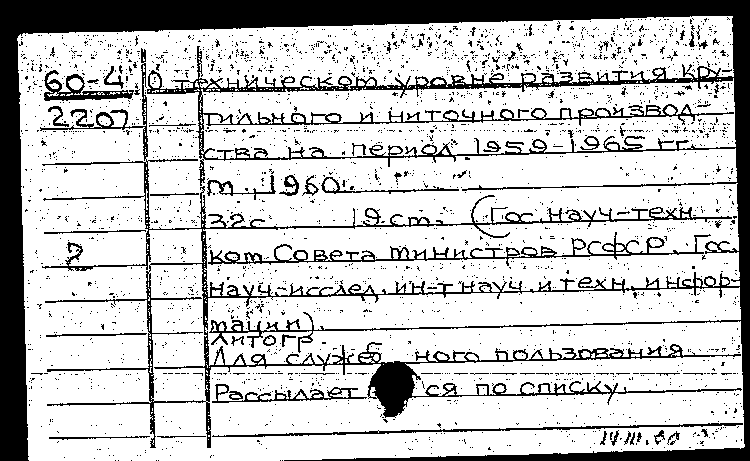 60-4 О техническом уровне развития кру-
2207 тильного и ниточного производ-
ства на период 1959-1965 гг.
м., 1960.
32с. 19 см. (Гос. науч-техн.
2 ком. Совета министров РСФСР. Гос.
науч.-исслед. ин-т науч. и техн. инфор-
мации).
Литогр.
Для служебного пользования
Рассылается по списку.
14.III.60